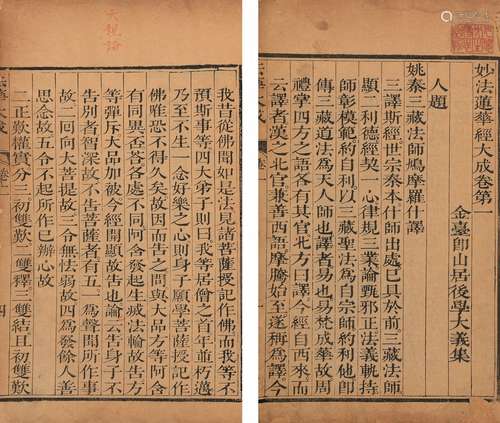 妙法蓮華經大成卷第一
金臺卽山居後學大義集
人題
姚秦三藏法師鳩摩羅什譯
三譯斯經世宗秦本什師出處已具於前三藏法師
顯二利德經契一心律規三業論甄邪正法義軌持
師彰模範約自利以三藏聖法為自宗師約利他卽
傳三藏道法為天人師也譯者易也易梵成華故周
禮掌四方之語各有其官北方曰譯今經自西來而
云譯者漢之北官兼善西語摩騰始至遂稱為譯今
我昔從佛聞如是法見諸菩薩授記作佛而我等不
預斯事等四大弟子則曰我等居僧之首年並朽邁
乃至不生一念好樂之心則身子願學菩薩授記作
佛唯恐不得久矣故因而告之問與大品方等阿含
有同異否答答各處不同阿含發起生滅法輪故告
等彈斥大品加被今經開顯故告也論云告身子不
告別者智深故不告菩薩者有五一為聲聞所作事
故二回向大菩提故三令無怯弱故四為發餘人善
思念故五令不起所作已辦心故
二正歎權實分三初雙歎二雙釋三雙結且初雙歎